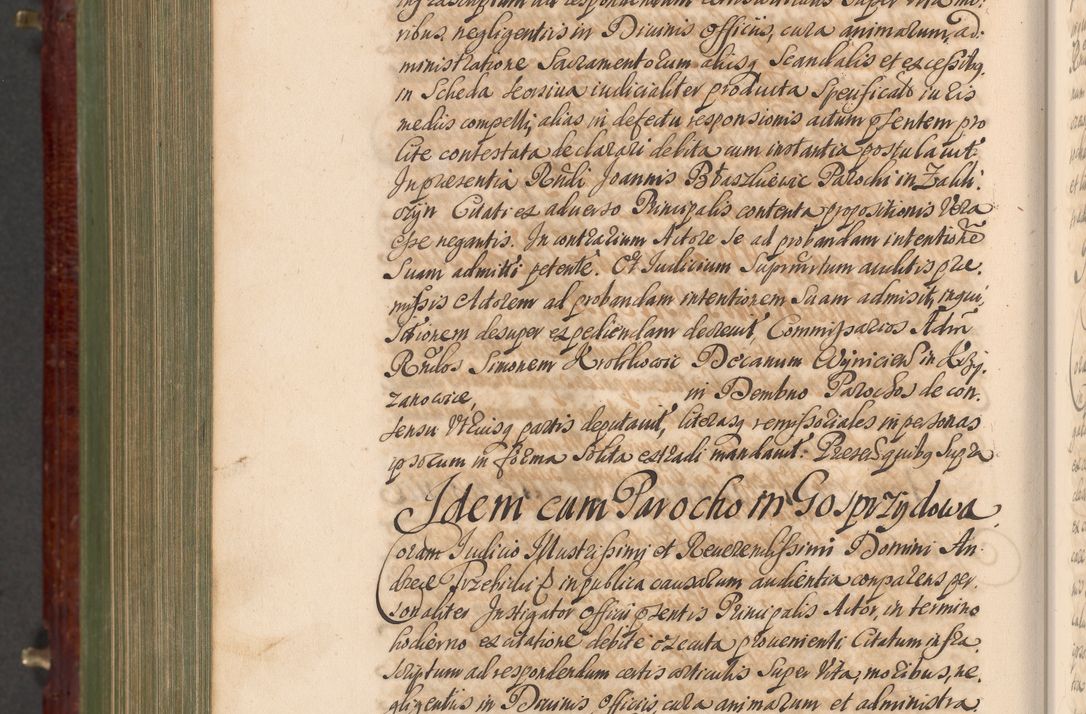 infrascriptum ad respondendum certis articulis super vita mo-
ribus, negligentiis in Divinis officiis, cura animarum, ad-
ministratione Sacramentorum aliisq Scandalis et excessibq
in Scheda seorsiva iudicialiter producta specificatis iuris
mediis compelli, alias in defectu responsionis actum pñtem pro
lite contestata declarari debita cum instantia postulavit
In praesentia Rñdi Joannis Błaszkiewic Parochi in Zakli-
czyn Citati ex adverso Principalis contenta propositionis vera
esse negantis. In contrarium Actore se ad probandam intentionē
suam admitti petente. Et Iudicium Suprascriptum auditis prae-
missis Actorem ad probandam intentionem suam admisit, inqui-
sitionem desuper expediendam decrevit, Commissarios Adm
Rñdos Simonem Krolikowic Decanum Woynicien in Krzy-
zanowice, in Dembno Parochos de con-
sensu utriusq partis deputavit, literasq remissoriales in personas
ipsorum in forma solita extradi mandavit. Presentibq quibq supra
Idem cum Parocho in Gosprzydowa
Coram Iudicio Illustrissimi et Reverendissimi Domini An-
dreae in publica causarum audientia comparens per-
sonaliter Instigator officii pñtis Principalis Actor, in termino
hodierno ex citatione debite exécuta provenienti Citatum infra
scriptum ad respondendum certis articulis super vita, moribus, ne-
gligentiis in Divinis officiis, cura animarum et administra